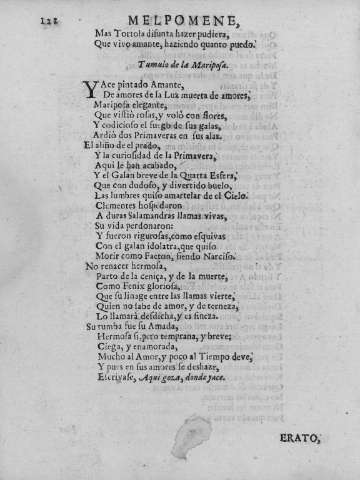 128 MELPOMENE,
Mas Tortola difunta hazer pudiera,
Que vivo amante, haziendo quanto puedo.
Tumulo de la Mariposa.
YAce pintado Amante,
De amores de la Luz muerta de amores,
Mariposa elegante,
Que vistiò rosas, y volò con flores,
Y codicioso el fuego de sus galas,
Ardiò dos Primaveras en sus alas.
El aliño de el prado,
Y la curiosidad de la Primavera,
Aqui se han acabado,
Y el Galan breve de la Quarta Esfera,
Que con dudoso, y divertido buelo,
Las lumbres quiso amartelar de el Cielo.
Clementes hospedaron
A duras Salamandras llamas vivas,
Su vida perdonaron:
Y fueron rigurosas, como esquivas
Con el galan idolatra, que quiso
Morir como Faeton, siendo Narciso.
No renacer hermosa,
Parto de la ceniça, y de la muerte,
Como Fenix gloriosa,
Que su linage entre las llamas vierte,
Quien no sabe de amor, y de terneza,
Lo llamarà desdicha, y es fineza.
Su tumba fue su Amada,
Hermosa si, pero temprana, y breve;
Ciega, y enamorada,
Mucho al Amor, y poco al Tiempo deve,
Y pues en sus amores se deshaze,
Escrivase, Aqui goza, donde jace.
ERATO,